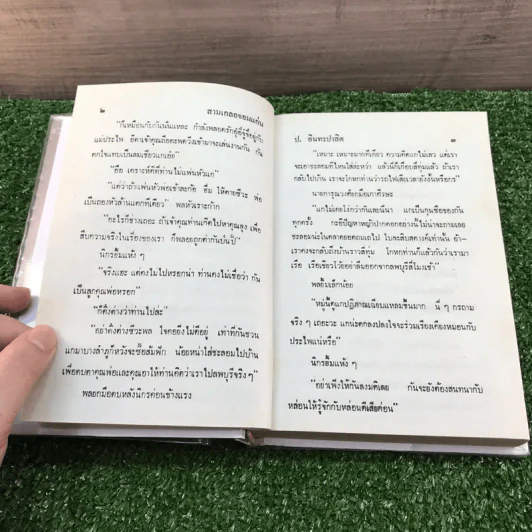 ๒ สามเกลอจอมแก่น
"ก็เหมือนกับกันนั่นแหละ กำลังพลอดรักอู้อี้จู๋จี๋อยู่กับ
แม่ประไพ อีตาเจ้าคุณถือตะพดวิ่งเข้ามาจะเล่นงานกัน กัน
ตกใจแทบเป็นลมเชียวแกเอ๋ย"
"ฮึย เคราะห์ดีที่ท่านไม่แพ่นหัวแก"
เป็นถองหัวล้านแตกทีเดียว" พลหัวเราะก๊าก
"อะไรก็ช่างเถอะ ถ้าเจ้าคุณท่านเกิดไปหาคุณลุง เพื่อ
สืบความจริงในเรื่องของเรา ก็พลอยถูกด่ากันป่นปี้"
นิกรอมยิ้มแห้ง
"จริงแฮะ แต่คงไม่ไปหรอกน่า ท่านคงไม่เชื่อว่า กัน
เป็นลูกคุณพ่อหรอก"
"ก็ดีต่างว่าท่านไปล่ะ"
"อย่าดีต่างซีวะพล ใจคอยิ่งไม่ดีอยู่ เท่าที่กันชวน
แกมาบางลำภูก็หวังจะซื้อส้มพัก น้อยหน่าใส่ชะลอมไปบ้าน
เพื่อตบตาคุณพ่อและคุณอาให้ท่านคิดว่าเราไปลพบุรีจริง ๆ"
พลยกมือตบหลังนิกรค่อนข้างแรง
ป. อินทรปาลิต ๓
"เหมาะ เหมาะมากทีเดียว ความคิดแกไม่เลว แต่เรา
จะเอาชะลอมที่ไหนใส่ล่ะหว่า แล้วนี่ก็เกือบสี่ทุ่มแล้ว ถ้าเรา
กลับไปบ้าน เราจะโกหกท่านว่ารถไฟเสียเวลายังงั้นหรือกร"
นายการุณวงศ์ยกมือเกาศีรษะ
"แกไม่เคยโง่กว่ากันเลยนี่นา แกเป็นกุนซือของกัน
ทุกครั้ง
ชะลอมน่ะในตลาดยอดถมเถไป
เราคงจะกลับถึงบ้านราวสี่ทุ่ม โกหกท่านก็แล้วกันว่าเรามา
เรือ
พลยิ้มเล็กน้อย
จริง ๆ เถอะวะ แกน่ะคงปลงใจจะร่วมเรียงเคียงหมอนกับ
ประไพแน่หรือ"
นิกรยิ้มแห้ง ๆ
"อย่าเพิ่งให้กันลงมติเลย กันจะยังต้องสนทนากับ
หล่อนให้รู้จักกับหล่อนดีเสียก่อน"